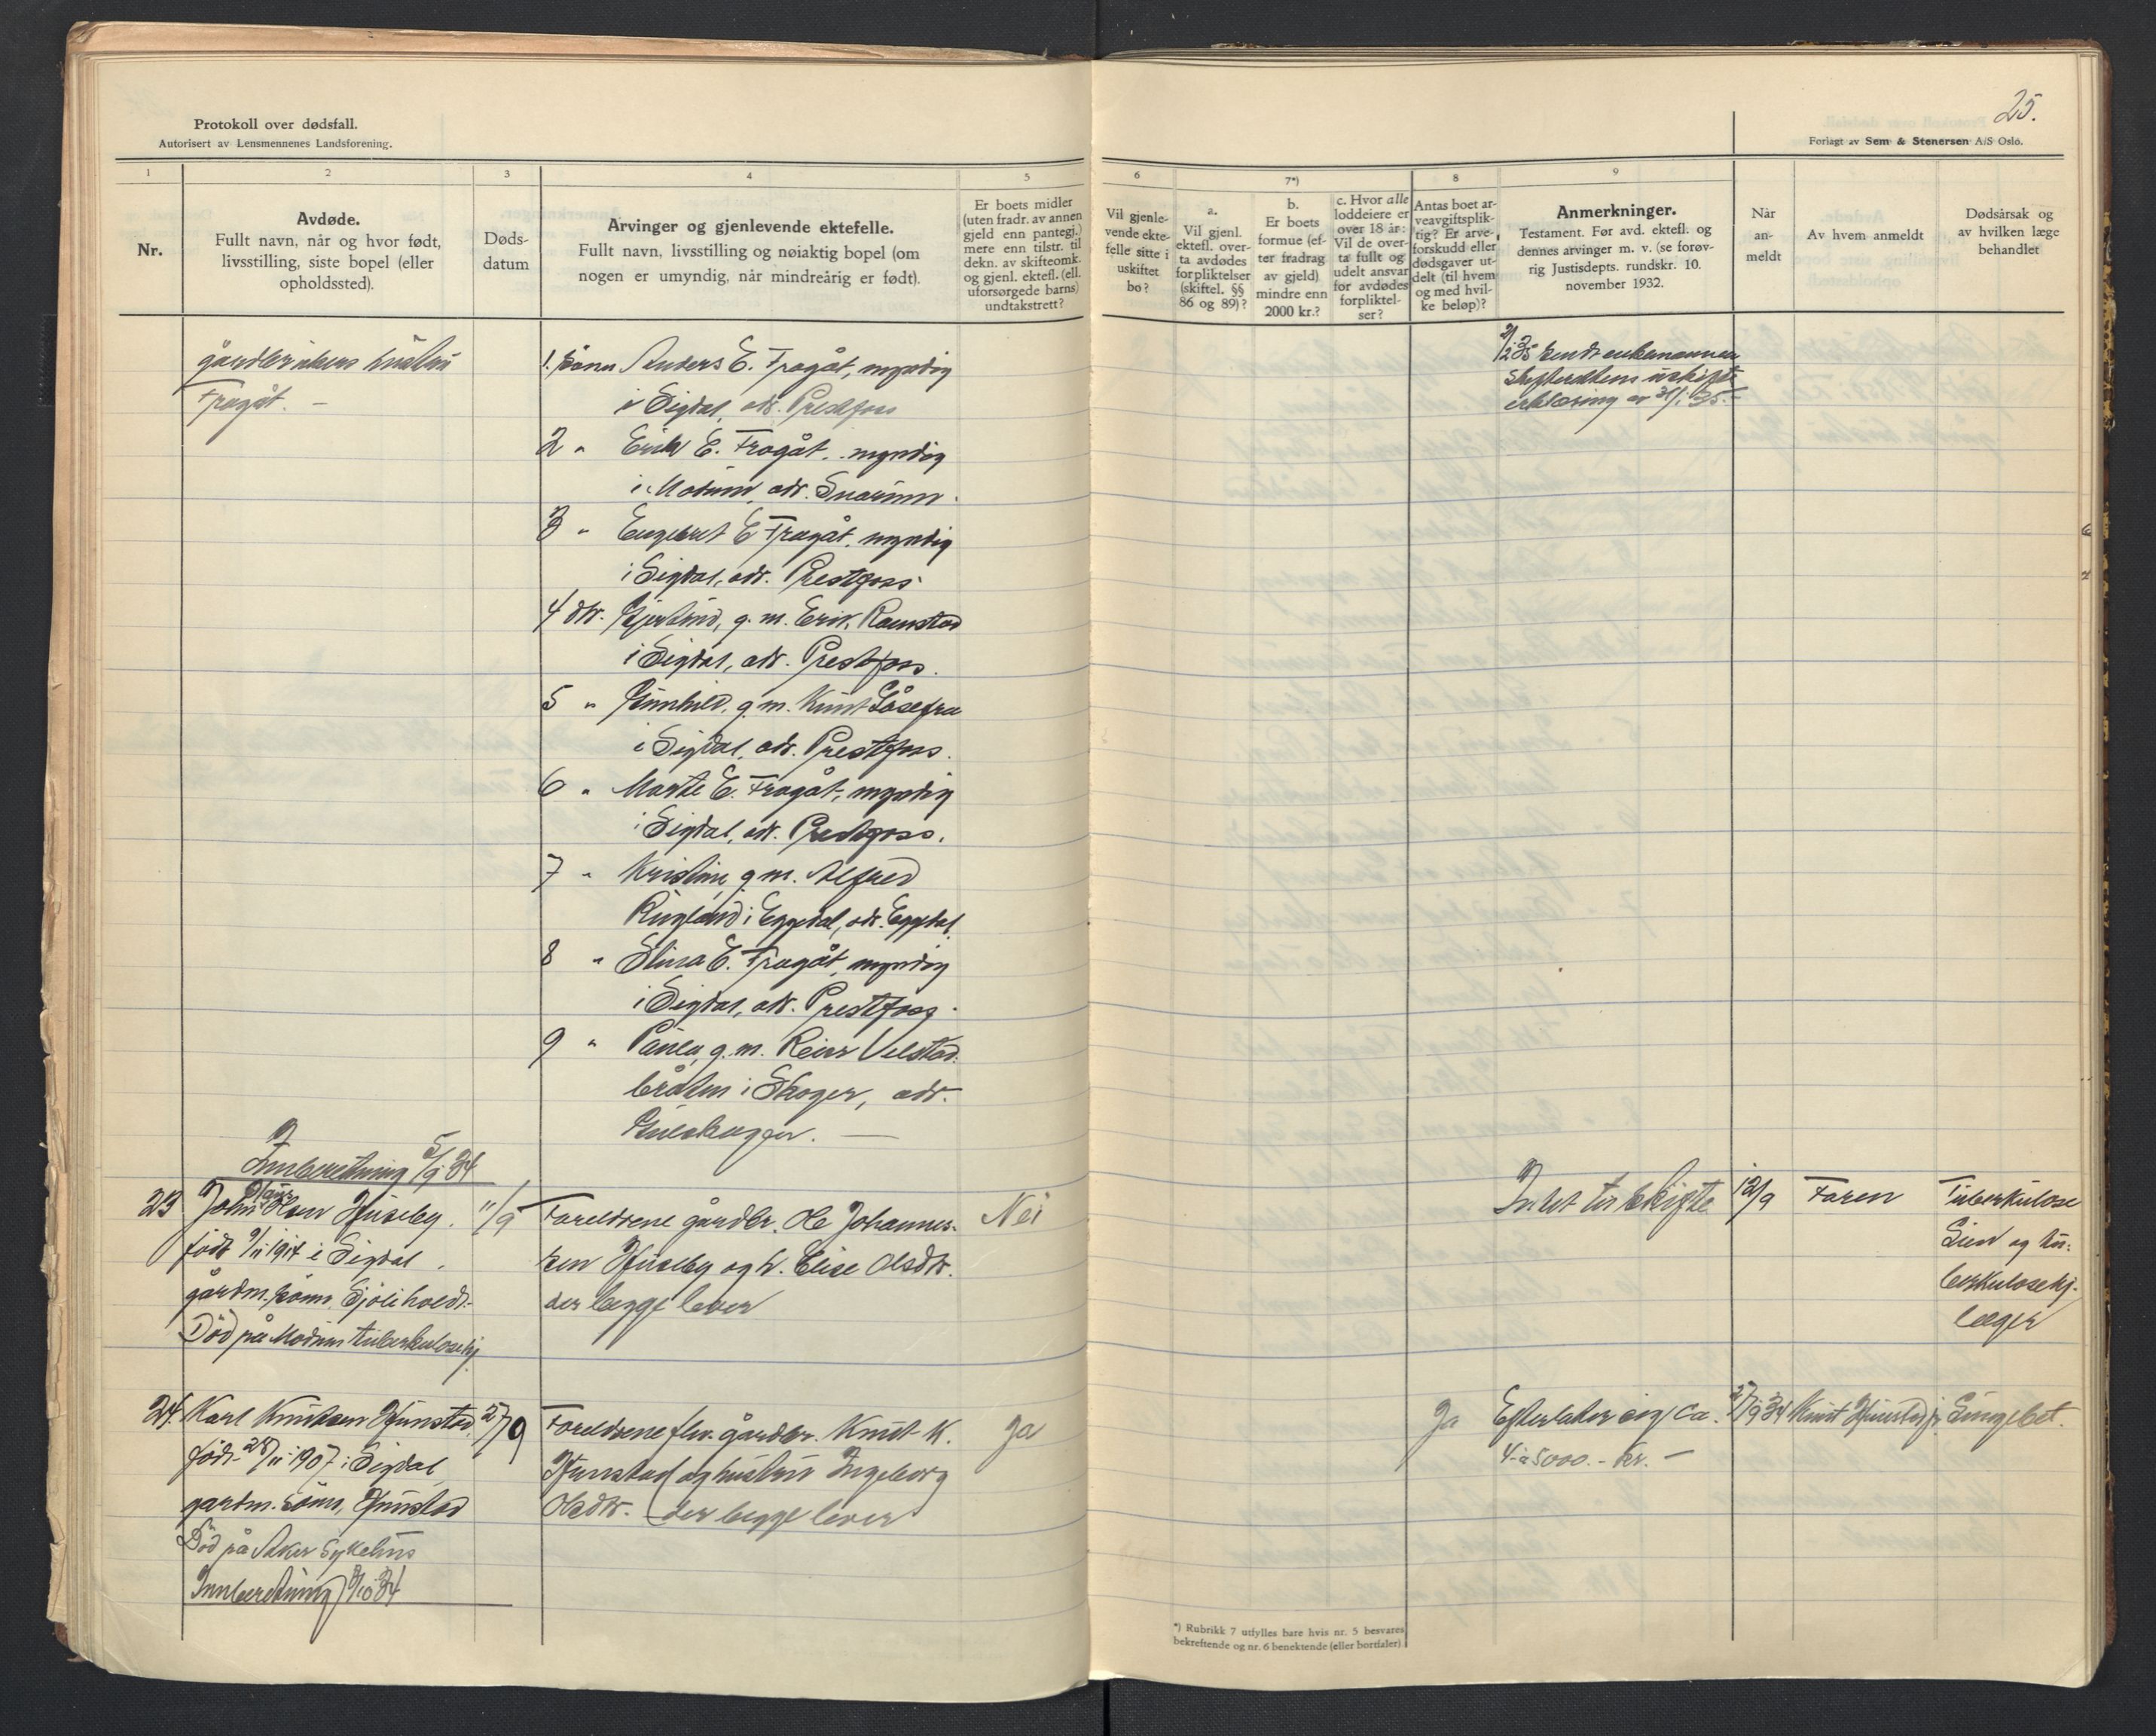 Protokoll over dødsfall.
Autorisert av Lensmennenes Landsforening.
25.
Forlagt av Sem & Stenersen A/S Oslo.
1
2
3
4
5
6
7*)
8
9
Nr.
Avdøde.
Fullt navn, når og hvor født,
livsstilling, siste bopel (eller
opholdssted).
Døds-
datum
Arvinger og gjenlevende ektefelle.
Fullt navn, livsstilling og nøiaktig bopel (om
nogen er umyndig, når mindreårig er født).
Er boets midler
(uten fradr. av annen
gjeld enn pantegj.)
mere enn tilstr. til
dekn. av skifteomk.
og gjenl. ektefl. (ell.
uforsørgede barns)
undtakstrett?
Vil gjenle-
vende ekte-
felle sitte i
uskiftet
bo?
a.
Vil gjenl.
ektefl. over-
ta avdødes
forpliktelser
(skiftel. §§
86 og 89)?
b.
Er boets
formue (ef-
ter fradrag
av gjeld)
mindre enn
2000 kr.?
c. Hvor alle
loddeiere er
over 18 år:
Vil de over-
ta fullt og
udelt ansvar
for avdødes
forpliktel-
ser?
Antas boet ar-
veavgiftsplik-
tig? Er arve-
forskudd eller
dødsgaver ut-
delt (til hvem
og med hvil-
ke beløp)?
Anmerkninger.
Testament. Før avd. ektefl. og
dennes arvinger m. v. (se forøv-
rig Justisdepts. rundskr. 10.
november 1932.
Når
an-
meldt
Av hvem anmeldt
Dødsårsak og
av hvilken læge
behandlet
gårdbrukers hustru
Frøgåt. —
1. sønn Anders E. Frøgåt, myndig
i Sigdal, adr. Prestfoss
2 " Erik E. Frøgåt, myndig
i Modum, adr. Snarum.
3 " Engebret E. Frøgåt, myndig
i Sigdal, adr. Prestfoss.
4 dtr. Kjerstine, g. m. Erik Ramstad
i Sigdal, adr. Prestfoss.
5 " Gunhild, g. m. Knut
i Sigdal, adr. Prestfoss.
6 " Marte E. Frøgåt, myndig
i Sigdal, adr. Prestfoss.
7 " Kristine, g. m. Alfred
Ringland i Eggedal, adr. Eggedal.
8 " E. Frøgåt, myndig
i Sigdal, adr. Prestfoss.
9 " Paula, g. m. Velstad-
bråten i Skoger, adr.
Gulskogen. —
2/2 35 sendt enkemannen
skifterettens uskifte
erklæring av 31/1 35.-
Innberetning 5/9 34
23 Johs. Olsen Huseby.
født 9/11 1914 i Sigdal
gårdm. sønn,
Død på Modum tuberkulosehj.
11/9
Foreldrene gårdbr. Ole Johannes-
sen Huseby og h. Elise Olsdtr.
der begge lever
Nei
Intet til skifte
12/9
Faren
Tuberkulose
Lien og tu-
berkulosehj.
læger
24. Karl Knutsen Hunstad,
født 28/11 1907 i Sigdal
gardm. sønn, Hunstad
Død på Aker Sykehus
Innberetning 8/10 34
27/9
Foreldrene fhv. gårdbr. Knut K.
Hunstad og hustru Ingeborg
Olsdtr. der begge lever
Ja
Ja
Efterlater sig ca.
4 à 5000.- kr. —
27/9 34
Knut Hunstad jr.
Lungebet.
*) Rubrikk 7 utfylles bare hvis nr. 5 besvares
bekreftende og nr. 6 benektende (eller bortfaler)